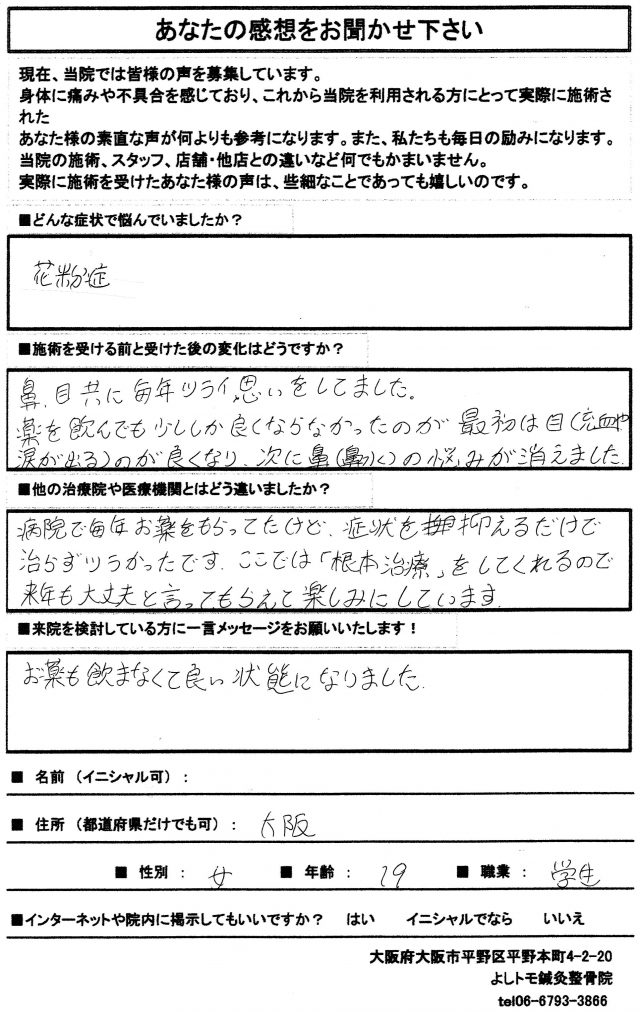 あなたの感想をお聞かせ下さい
現在、当院では皆様の声を募集しています。
身体に痛みや不具合を感じており、これから当院を利用される方にとって実際に施術さ
れた
あなた様の素直な声が何よりも参考になります。また、私たちも毎日の励みになります。
当院の施術、スタッフ、店舗・他店との違いなど何でもかまいません。
実際に施術を受けたあなた様の声は、些細なことであっても嬉しいのです。
■どんな症状で悩んでいましたか？
花粉症
■施術を受ける前と受けた後の変化はどうですか？
鼻、目共に毎年ツライ思いをしてました。
薬を飲んでも少ししか良くならなかったのが最初は目(充血や
涙が出る)のが良くなり、次に鼻(鼻水)の悩みが消えました。
■他の治療院や医療機関とはどう違いましたか？
病院で毎年お薬をもらってたけど、症状を抑えるだけで
治らずツラかったです。ここでは「根本治療」をしてくれるので
来年も大丈夫と言ってもらえて楽しみにしています。
■来院を検討している方に一言メッセージをお願いいたします！
お薬も飲まなくて良い状態になりました。
■ 名前（イニシャル可）：
■ 住所（都道府県だけでも可）： 大阪
■ 性別 ： 女 ■ 年齢 ： 19 ■ 職業 ： 学生
■インターネットや院内に掲示してもいいですか？ はい イニシャルでなら いいえ
大阪府大阪市平野区平野本町4-2-20
よしトモ鍼灸整骨院
tel06-6793-3866